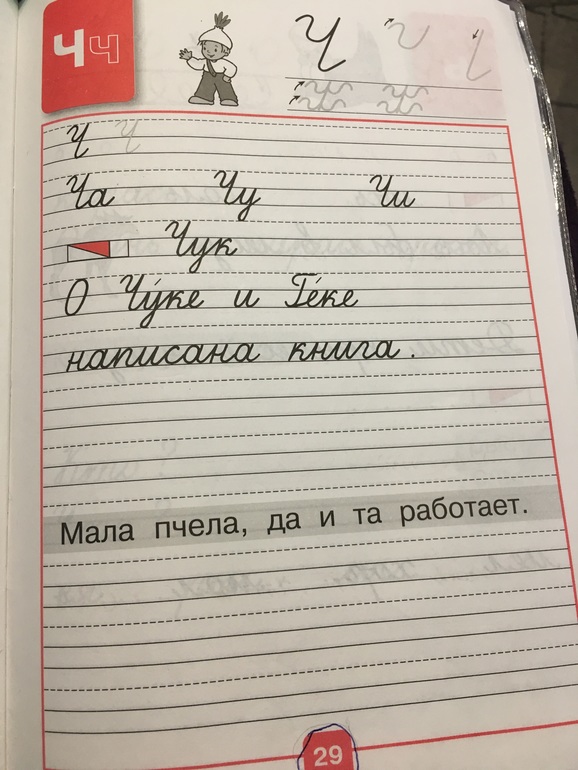 Ч ч
Ч
Ч Ч
Ча Чу Чи
Чук
О Чу́ке и Ге́ке
написана книга.
Мала пчела, да и та работает.
29